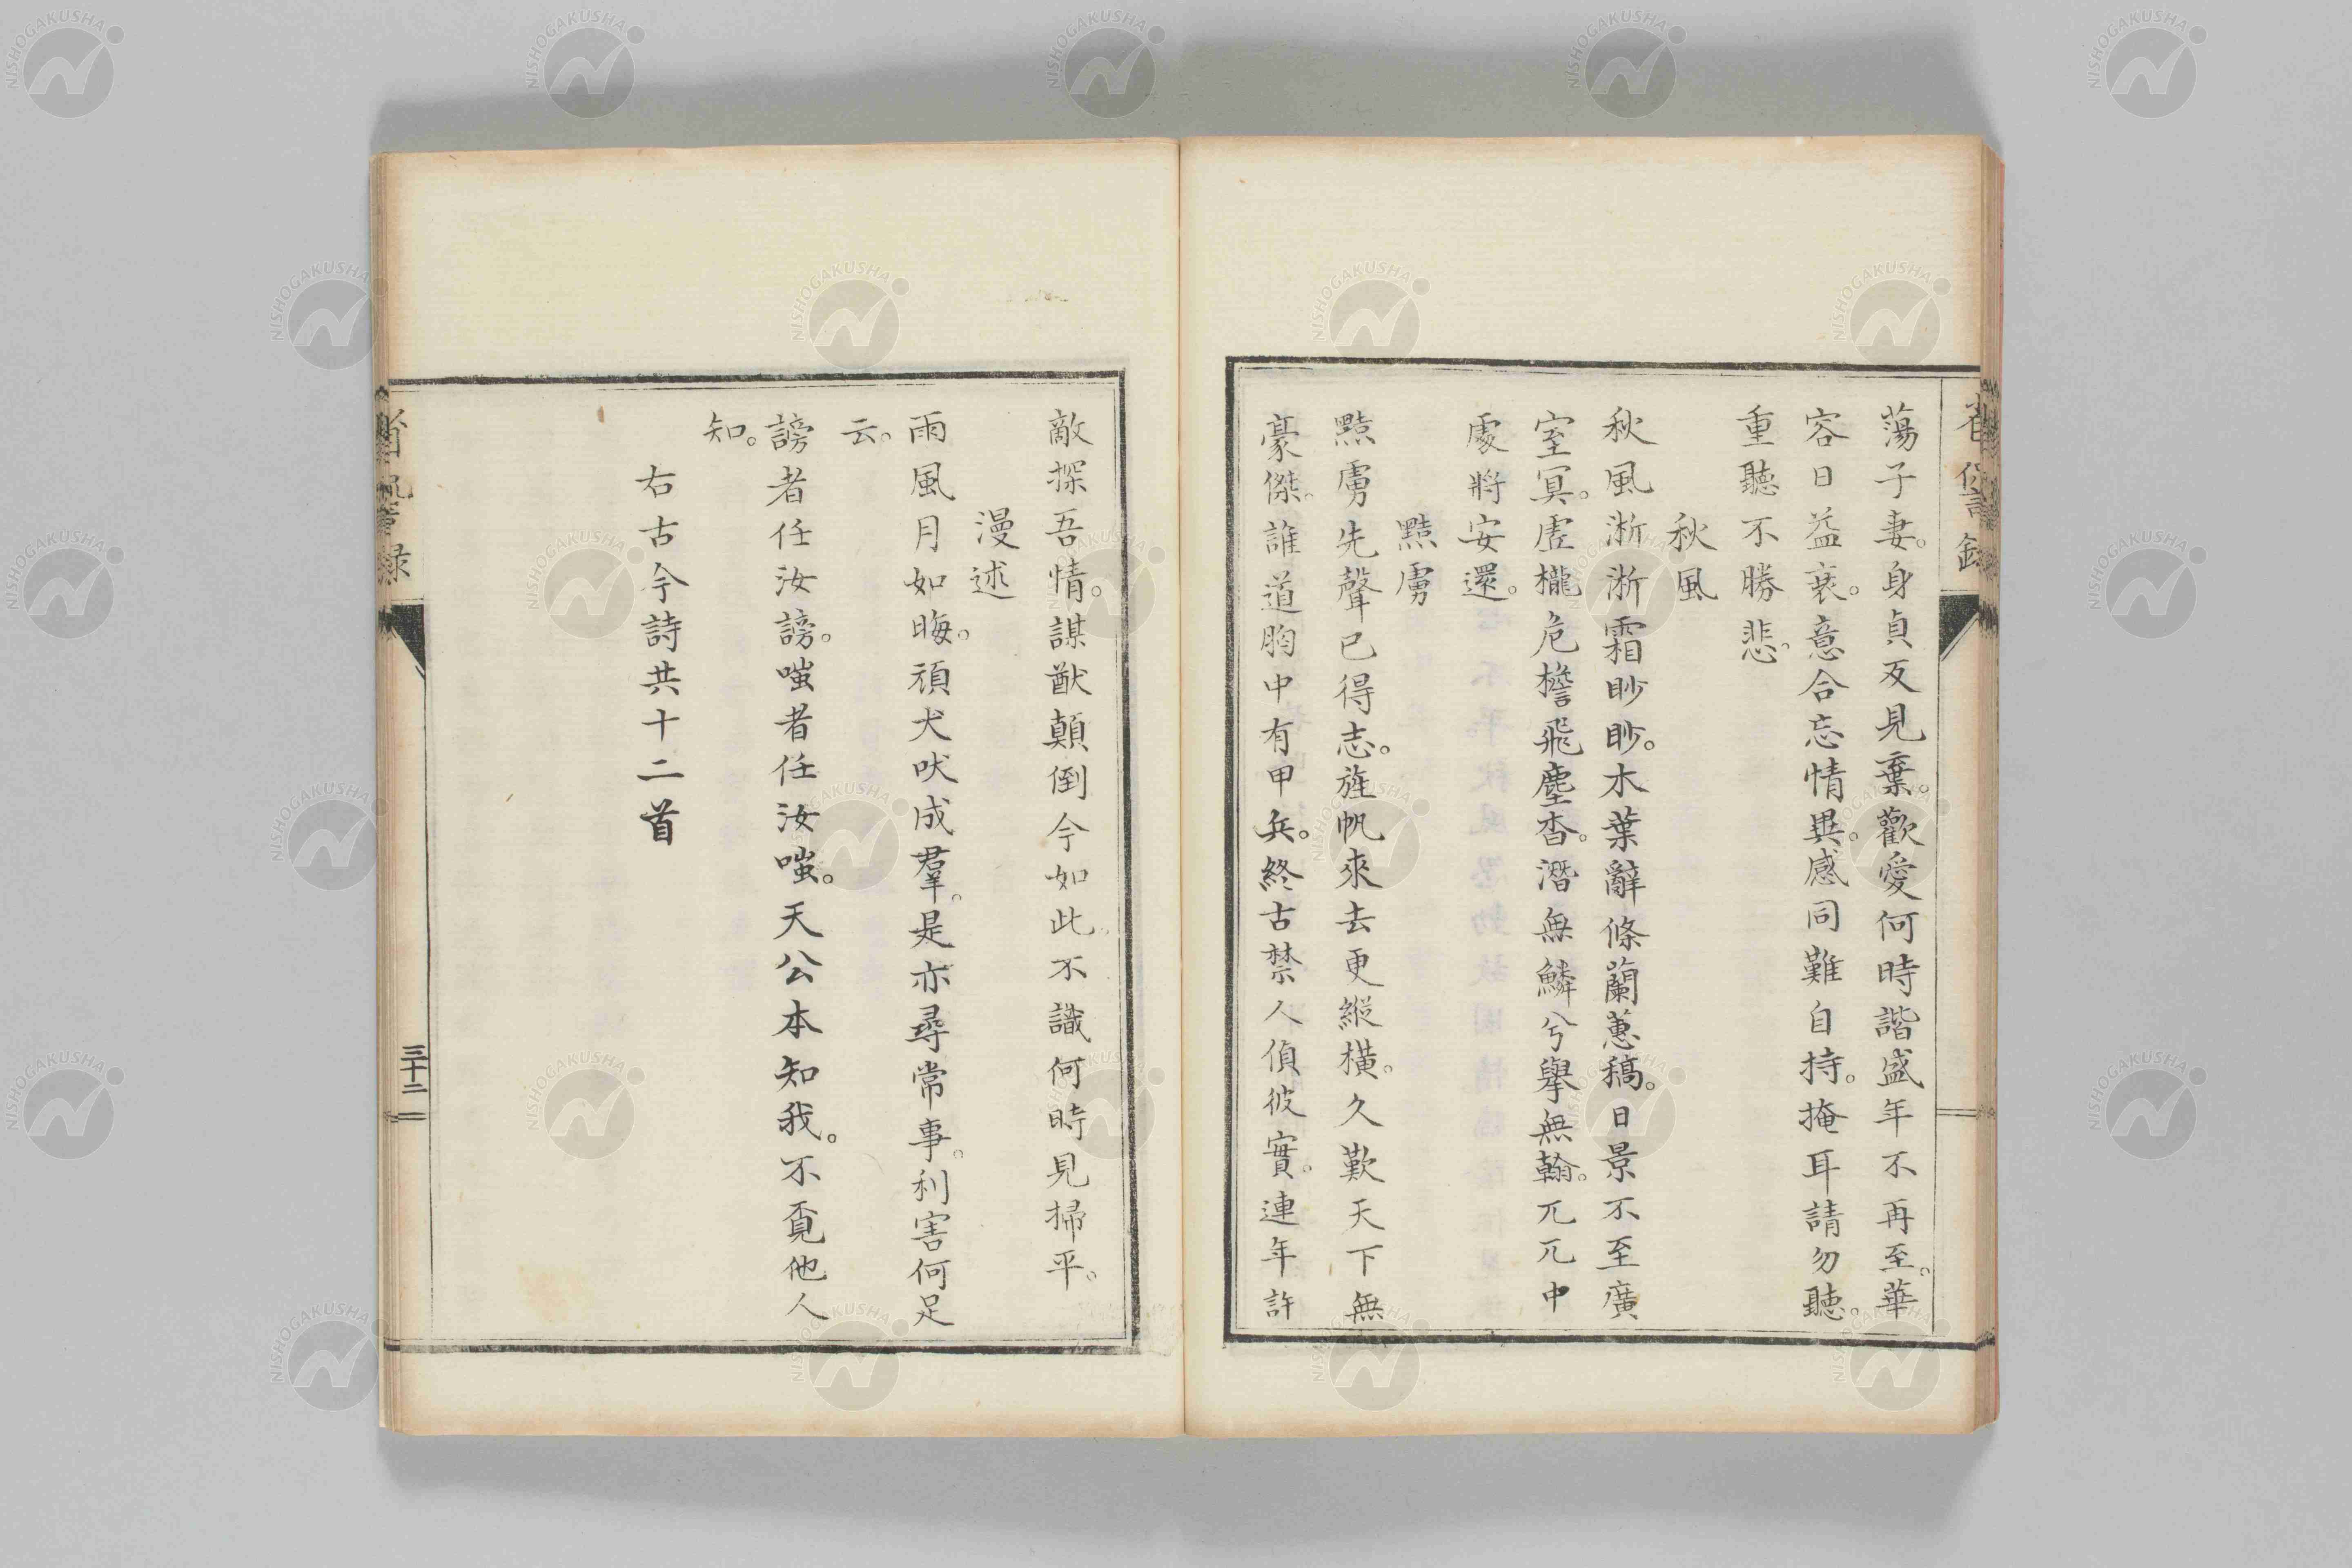 蕩子妻。身貞反見棄。歡愛何時諧盛年不再至。華
容日益衰。意合忘情異。感同難自持。掩耳請勿聽。
重聽不勝悲。
秋風
秋風淅淅霜眇眇。木葉辭條蘭蕙稿。日景不至廣
室冥。虚櫳危檐飛塵杳。潛無鱗兮擧無翰。兀兀中
處將安還。
黠虜
黠虜先聲已得志。旌帆來去更縱横。久歎天下無
豪傑。誰道胸中有甲兵。終古禁人偵彼實。連年許
敵探吾情。謀猷顛倒今如此。不識何時見掃平。
漫述
雨風月如晦。頑犬吠成羣。是亦尋常事。利害何足
云。
謗者任汝謗。嗤者任汝嗤。天公本知我。不覔他人
知。
右古今詩共十二首
三十二
NISHOGAKUSHA